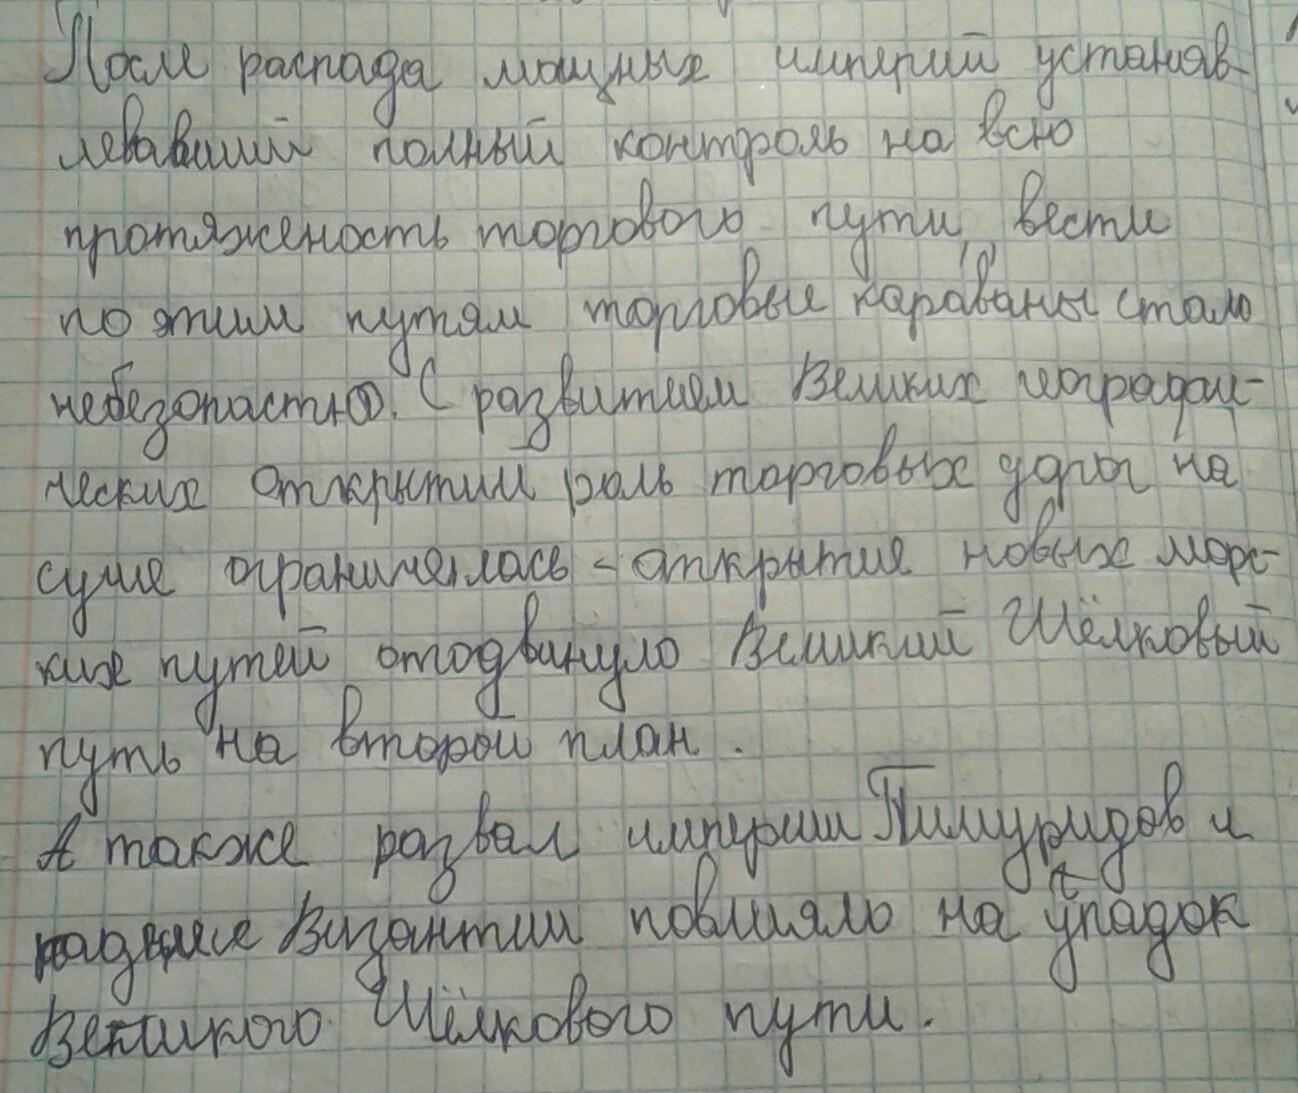 После распада мощных империй устанав-
левавший полный контроль на всю
протяженость торгового пути, вести
по этим путям торговые караваны стало
небезопастно. С развитием Великих георафи-
ческих открытии роль торговых дорог на
суше ограничелась - открытие новых морс-
ких путей отодвинуло Великий Шёлковый
путь на второй план.
А также развал империи Тимуридов и
падение Византии повлияло на упадок
Великого Шёлкового пути.